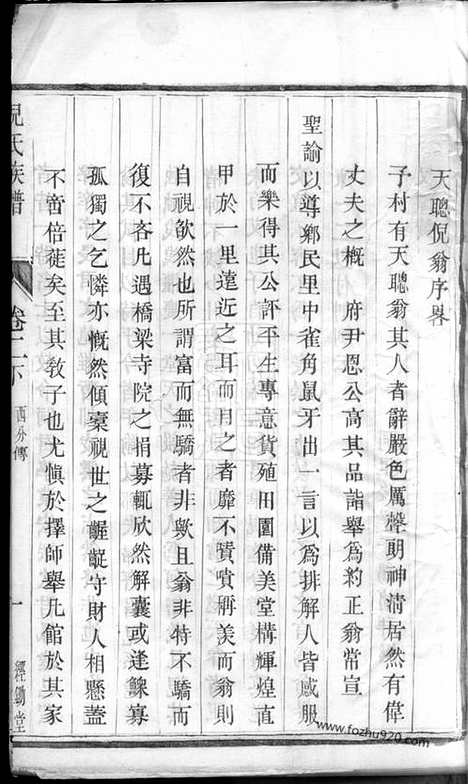 天聰倪翁序畧
予村有天聰翁其人者辭嚴色厲聲朗神清居然有偉
丈夫之概 府尹恩公高其品詣舉為約正翁常宣
聖諭以導鄉民里中雀角鼠牙出一言以為排解人皆感服
而樂得其公評平生專意貨殖田園備美堂構輝煌直
甲於一里遠近之耳而目之者靡不嘖嘖稱羨而翁則
自視欿然也所謂富而無驕者非歟且翁非特不驕而
復不吝凡遇橋梁寺院之捐募輒欣然解囊或逢鰥寡
孤獨之乞憐亦慨然傾橐視世之齷齪守財人相懸蓋
不啻倍蓰矣至其敎子也尤愼於擇師舉凡館於其家
倪氏族譜 卷二下 西分傳 一 經鋤堂
www.fozhu920.com